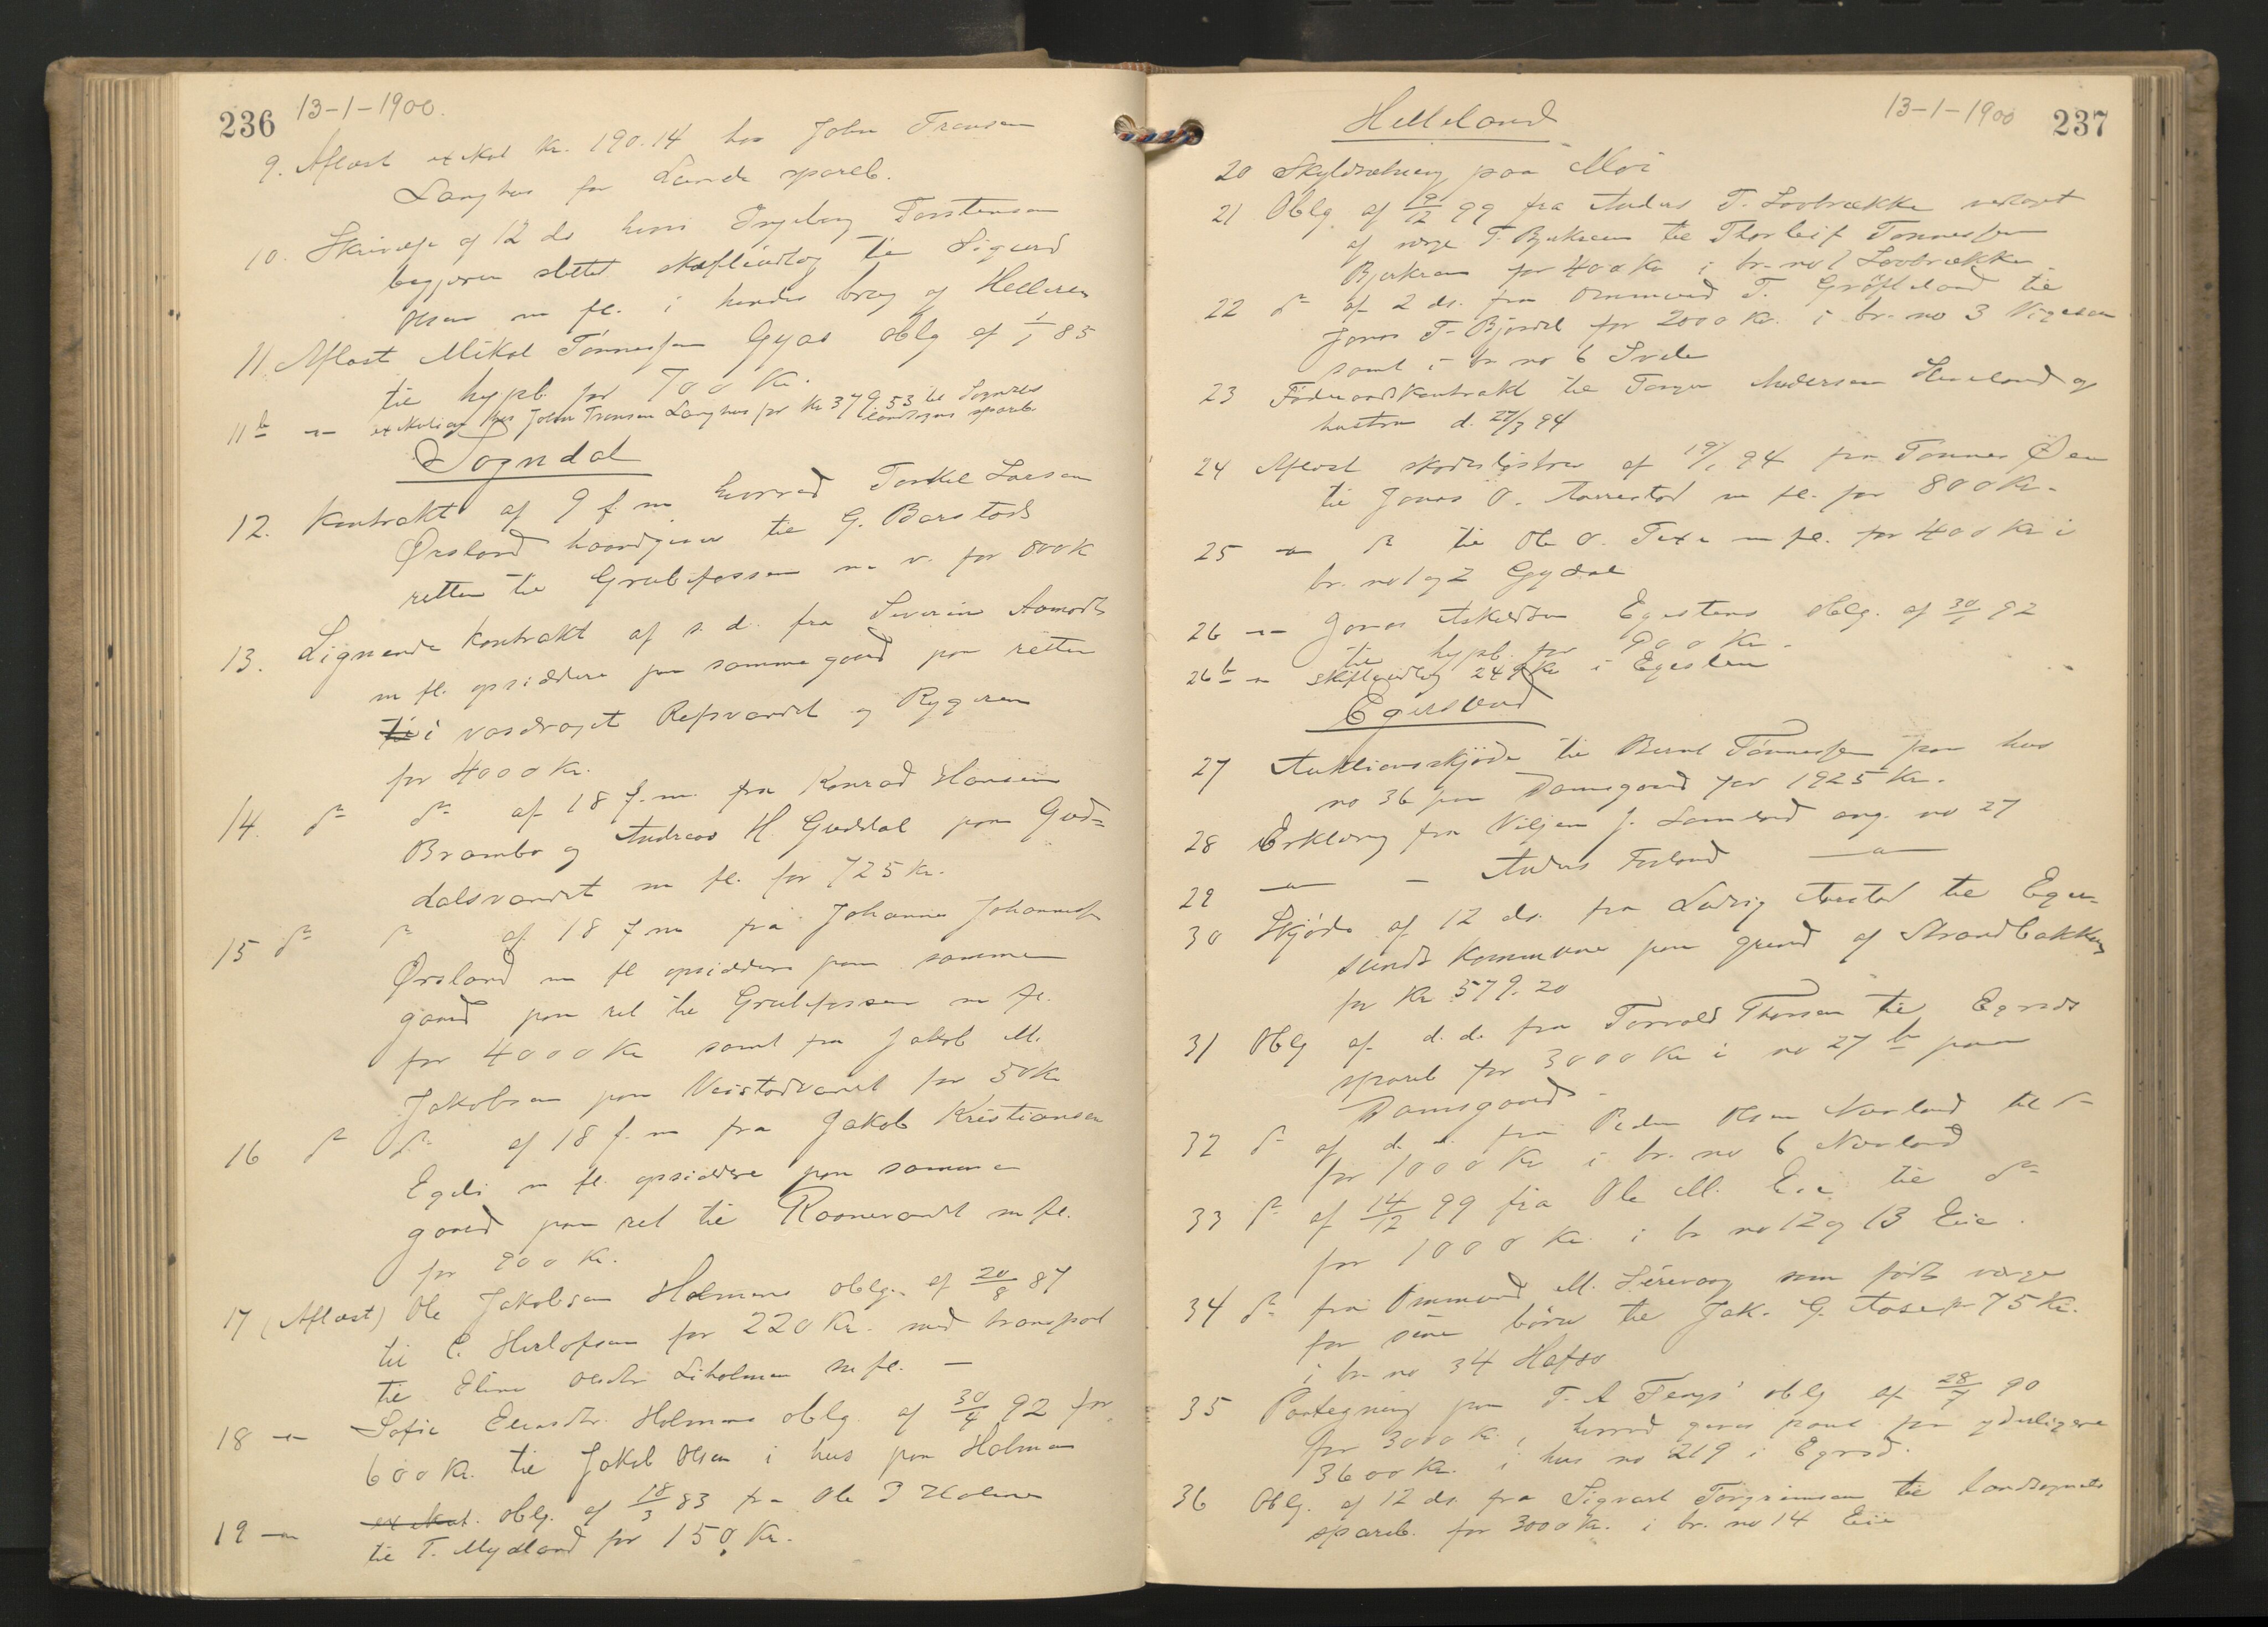 236 13-1-1900.
9. Aflæst exekut Kr. 190.14 hos John Tronsen
Langhus for Lunde spareb.
10. Skrivelse af 12 ds hvori Ingeborg Torstensen
begjærer slettet skifteudlæg til Sigurd
Olsen m fl. i hendes brug af Helleren
11. Aflæst Mikal Tønnessen Gyas oblg af 1/1 85
til hypb. for 700 Kr.
11b -"- exekution hos John Tronsen Langhus for Kr 379.53 til Sogndals
landsogns spareb.
Sogndal
12. Kontrakt af 9 f.m. hvorved Torkel Larsen
Ørsland haandgiver til G. Barstad
retten til Grubefossen m. v. for 800 K
13. Lignende kontrakt af s. d. fra Severin Aamodt
m fl. opsiddere paa samme gaard paa retten
til i vasdraget Refsvandet og Rygeren
for 4000 Kr.
14. do do af 18 f.m. fra Konrad Hansen
Brambo og Andreas H. Guddal paa Gud=
dalsvandet m fl. for 725 Kr.
15 do do af 18 f m fra Johannes Johannessen
Ørsland m fl opsiddere paa samme
gaard paa ret til Grubefossen m fl.
for 4000 Kr samt fra Jakob M.
Jakobsen paa Veistadvandet for 50 Kr
16 do do af 18 f. m fra Jakob Kristiansen
Egeli m fl. opsiddere paa samme
gaard paa ret til Raanevandet m fl.
for 900 Kr.
17 (Aflæst) Ole Jakobsen Holmens oblg. af 20/8 87
til C. Herlofsen for 220 Kr. med transport
til Eline Olsdtr Liholmen m fl. -
18 -"- Sofie Eliasdtr. Holmens oblg. af 30/4 92 for
600 Kr. til Jakob Olsen i hus paa Holmen
19 -"- exekut. oblg. af 18/3 83 fra Ole J Holmen
til T. Mydland for 150 Kr.
Helleland 13-1-1900 237
20 Skyldsætning paa Moi
21 Oblg. af 9/12 99 fra Anders T. Lovbrække vedtaget
af verge T. Bjerkrem til Thorleif Tonnessen
Bjerkrem for 400 Kr i br. no 1 Lovbrække
22 do af 2 ds. fra Ommund T. Gröfteland til
Jonas T. Bjordal for 2000 Kr. i br. no 3 Vigesaa
samt i br no 6 Svela
23 Föderaadskontrakt til Torger Andersen Hæveland og
hustru d. 27/3 94
24 Aflæst skadesløsbrev af 19/1 94 fra Tonnes Øen
til Jonas O. Aarrestad m fl. for 800 Kr.
25 -"- do til Ole O. Texe m fl. for 400 Kr i
br. no 1 og 2 Gydal
26 -"- Jonas Askildsen Egestens oblg. af 30/1 92
til hypb. for 900 Kr.
26b -"- skifteudlæg 249 Kr i Egesten
Egersund
27 Auktionsskjøde til Bernt Tønnessen paa hus
no 36 paa Damsgaard for 1925 Kr.
28 Erklæring fra Viljem J. Samland ang. no 27
29 -"- - Anders Forland -"-
30 Skjöde af 12 ds. fra Ludvig Aarstad til Eger-
sunds kommune paa grund af Strandbakken
for Kr 579.20
31 Oblg af d. d. fra Torvald Thorsen til Egrsds
spareb for 3000 Kr i no 27 b paa
Damsgaard.
32 do af d. d. fra Peder Olsen Navland til do
for 1000 Kr i br. no 6 Navland
33 do af 14/12 99 fra Ole M. Eie til do
for 1000 Kr. i br no 12 og 13 Eie.
34 do fra Ommund M. Sirevaag som født verge
for sine börn til Jak. G. Aase for 75 Kr.
i br. no 34 Hafsø
35 Paategning paa T. A Tengs' oblg af 28/7 90
for 3000 Kr., hvorved gives pant for yderligere
3600 Kr. i hus no 219 i Egrsd.
36 Oblg. af 12 ds. fra Sigvart Torgrimsen til landsognets
spareb. for 3000 Kr. i br. no 14 Eie